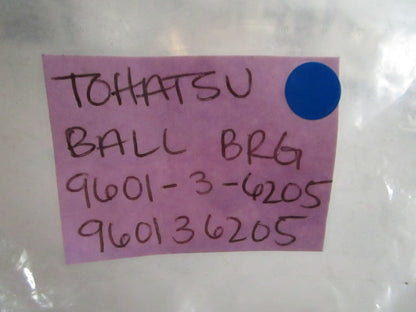 TOHATSU
BALL BRG
9601-3-6205
960136205